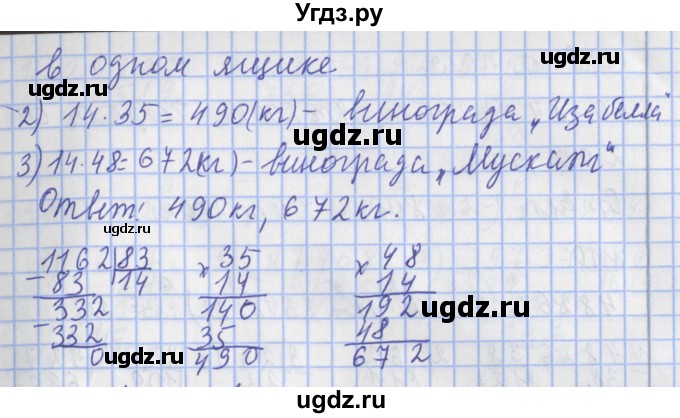 Угдз.ру
ugdz.ru ugdz.ru
в одном ящике
2) 14·35=490(кг)- винограда „Изабелла“
ugdz.ru
3) 14·48=672(кг)-винограда „Мускат“
Ответ: 490кг, 672кг.
1162 83 35 48
-83 14 × 14 × 14
332 140 192 ugdz.ru
-332 35 48
0 ugdz.ru 490 672
ugdz.ru